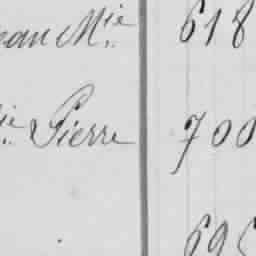 ean M.ie 618
ie Pierre 700
695